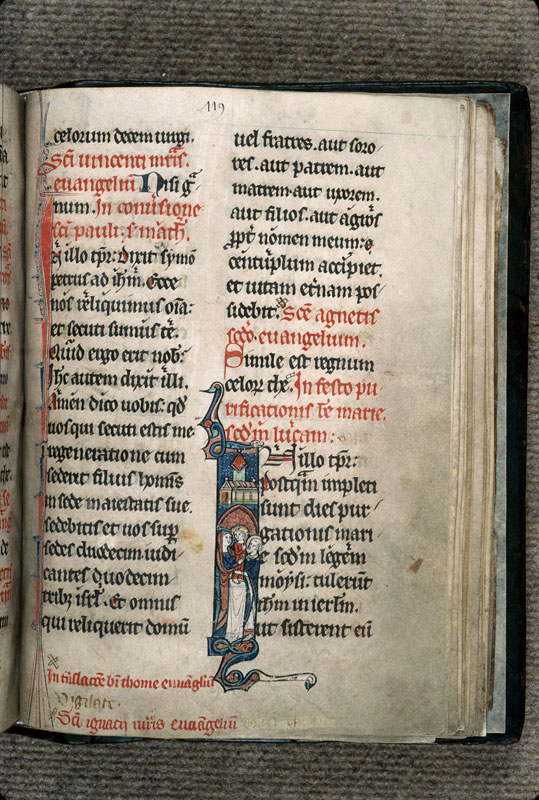 119
celorum decem uirgi.
Sc̄i uincentii mr̄is.
euangeliū Nisi gͣ-
num. In conuersione
sc̄i pauli. s. math̄.
In illo tp̄r: Dixit symō
petrus ad ih̄m. Ecce
nos reliquimus om̄a:
et secuti sumus te.
Quid ergo erit nob̄:
Ih̄c autem dixit illi.
Amen dico uobis: qd̄
uos qui secuti estis me
in regeneratione cum
sederit filius hominis
in sede maiestatis sue.
sedebitis et uos sup̄
sedes duodecim iudi
cantes duodecim
tribꝫ isrl̄. Et omnis
qui reliquerit domū
uel fratres. aut soro-
res. aut patrem. aut
matrem. aut uxorem.
aut filios. aut agros
ꝓpt̄ nomen meum:
centuplum accipiet.
et uitam et̄nam pos-
sidebit. Sc̄e agnetis
sc̄do. euangelium.
Simile est regnum
celoꝝ the. In festo pu
rificationis be marie.
scd̄m lucam:
In illo tp̄r:
postq̄m impleti
sunt dies pur
gationis mari
e scd̄m legem
moysi: tulerūt
ih̄m in ierlm̄.
ut sisterent eū
In tn̄slacōe bī thome euuāgliū
Vigilate.
Sc̄i ignacii mr̄is euuāgeliū